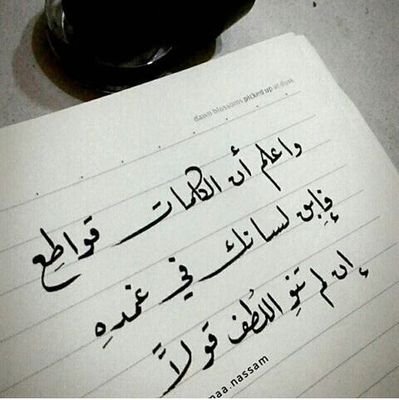 dawn blossoms picked up at dusk
واعلم أن الكلمات قواطِع
فإبن لسانك في غمدهِ
إن لم تنوِ اللُطف قولاً
maa.nassam